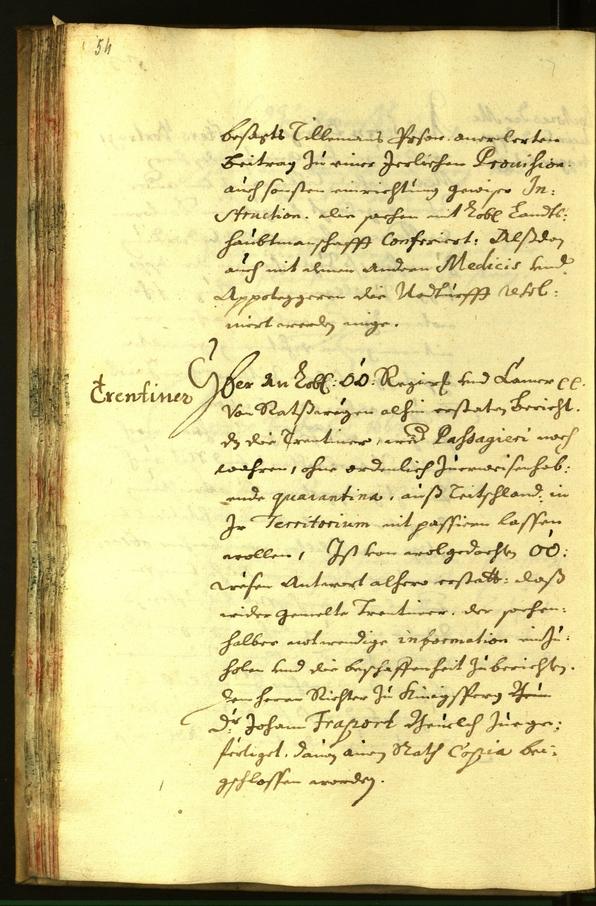 54
besagts Tillemans Person. anerbotten
Beitrag zu einer Jerlichen Provision.
auch sonsten einrichtung gewiser In:
struction. die sachen mit Lobl. Landts:
haubtmanschafft Conferiert: Alßdan
auch mit denen andern Medicis und
Appoteggeren die Notturfft
werden müge.
Trentiner
Uber an Lobl: OÖ: Regierg und Camer
Von Ratßwegen alhin erstaten Bericht.
dz die Trentiner, Passagieri noch
wahren, ohne ordenlich Zuerweisen hab:
ende quarantina, auß Teitschland, in
Ir Territorium nit passiren lassen
wollen, Ist von wolgedachten OÖ:
wesen Antwort alhero erstatt: daß
wider gemelte Trentiner. der sachen:
halber notwendige information einzu:
holen und die beschaffenheit zuberichten.
dem herrn Richter zu Künigsperg
Dr Johann Fraport zuege:
fertiget, davon ainem Rath Copia bei:
geschlossen worden.